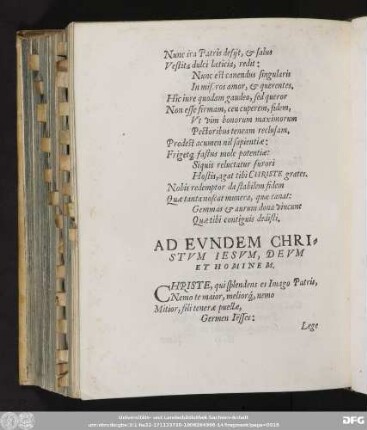 Nunc ira Patris desijt, & salus
Vestitæ dulci læticia, redit:
Nunc est canendus singularis
In miseros amor, & querentes,
Hic iure quodam gaudeo, sed queror
Non esse firmam, ceu cuperem, fidem,
Vt vim bonorum maximorum
Pectoribus teneam reclusam,
Prodest acumen nil sapientiæ:
Friget fastus mole potentiæ:
Siquis reluctatur furori
Hostis, agat tibi CHRISTE grates.
Nobis redemptor da stabilem fidem
Quæ tanta noscat munera, quæ canat:
Gemmas & aurum dona vincunt
Quæ tibi contiguis dedisti,
AD EVNDEM CHRI-
STVM IESVM, DEVM
ET HOMINEM.
CHRISTE, qui splendens es Imago Patris,
Nemo te maior, meliorq́, nemo
Mitior, fili teneræ puellæ,
Germen Iessæ:
Lege
Universitäts- und Landesbibliothek Sachsen-Anhalt
DFG